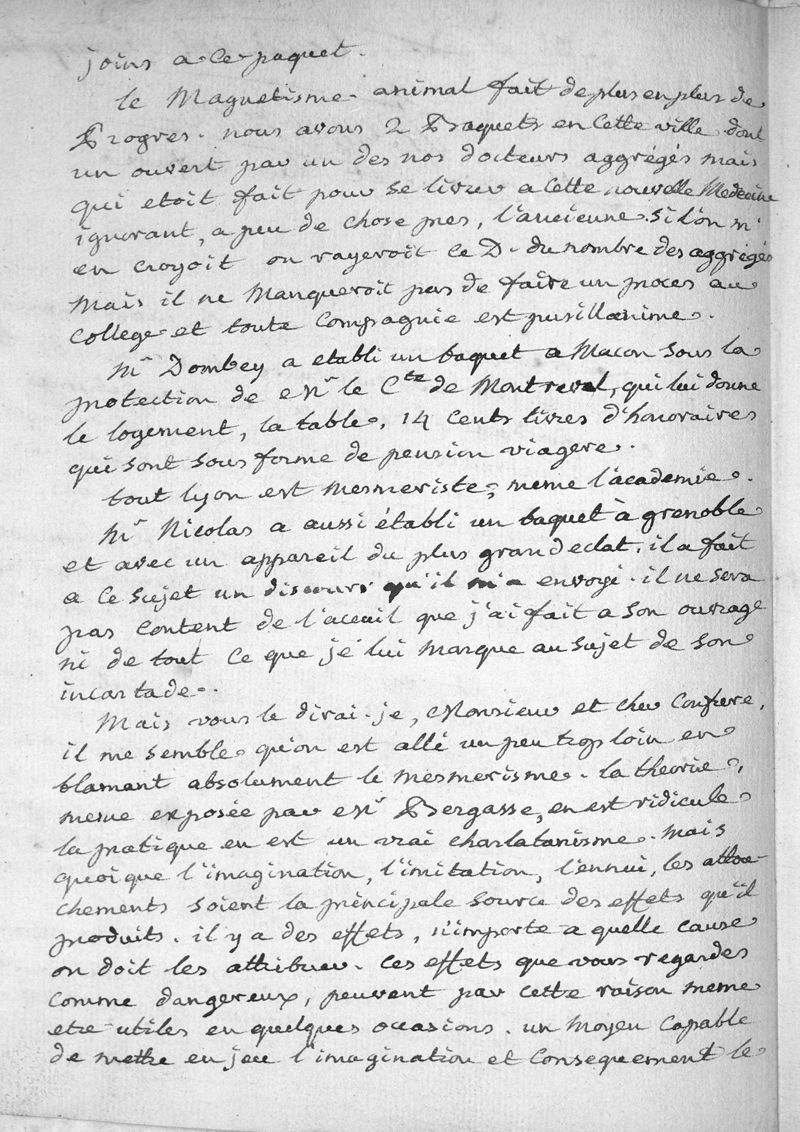 joins a ce paquet.
le Magnetisme animal fait de plus en plus de
Progres. nous avons 2 Baquets en cette ville dont
un ouvert par un des nos docteurs aggrégés mais
qui etoit fait pour se livrer a cette nouvelle Medecine
ignorant, a peu de chose pres, l'ancienne. si l'on m'
en croyoit on rayeroit ce D. du nombre des aggrégés
Mais il ne Manqueroit pas de faire un proces au
College et toute Compagnie est pusillanime.
Mr Dombey a etabli un baquet a Macon sous la
protection de Mr le Cte de Montrevel, qui lui donne
le logement, la table, 14 cents livres d'honoraires
qui sont sous forme de pension viagere.
tout lyon est mesmeriste, meme l'academie.
Mr Nicolas a aussi établi un baquet à grenoble
et avec un appareil du plus grand eclat. il a fait
a ce sujet un discours qu'il m'a envoyé. il ne sera
pas content de l'aceuil que j'ai fait a son ouvrage
ni de tout ce que je lui marque au sujet de son
incartade.
Mais vous le dirai-je, Monsieur et cher Confrere,
il me semble qu'on est allé un peu trop loin en
blamant absolument le mesmerisme. la theorie,
meme exposée par Mr Bergasse, en est ridicule
la pratique en est un vrai charlatanisme. Mais
quoique l'imagination, l'imitation, l'ennui, les attou-
chements soient la principale source des effets qu'il
produits. il y a des effets, n'importe a quelle cause
on doit les attribuer. Ces effets que vous regardes
comme dangereux, peuvent par cette raison meme
etre utiles en quelques occasions. un moyen capable
de mettre en jeu l'imagination et consequement le